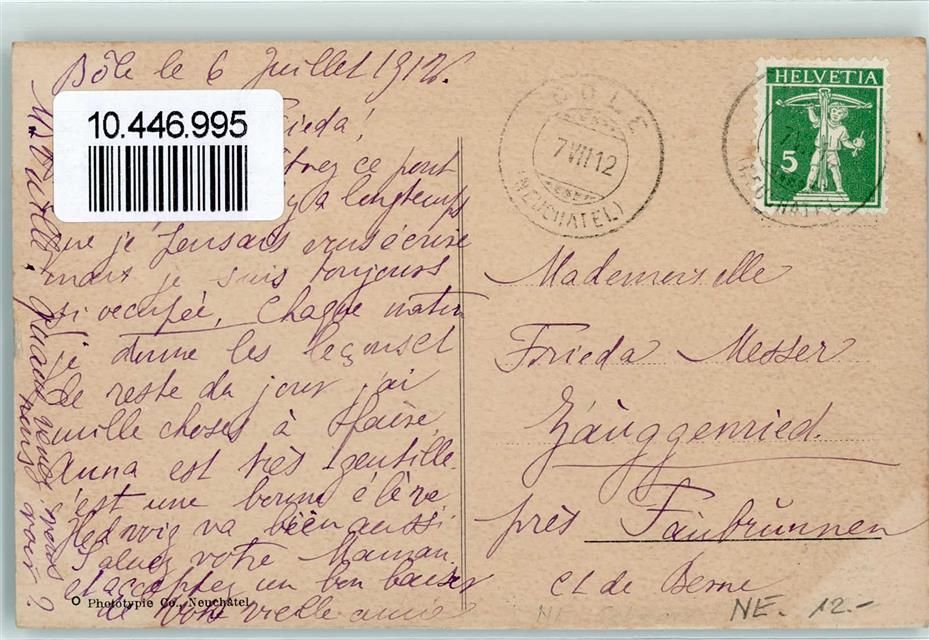 Bôle le 6 Juillet 1912.
10.446.995
Frieda!
ce pont
y a longtemps
que je pensais vous écrire
mais je suis toujours
si occupée, Chaque matin
je donne les leçons et
le reste du jour j'ai
mille choses à faire.
Anna est très gentille
c'est une bonne élève
Hedwig va bien aussi
Saluez votre Maman
et acceptez un bon baiser
de votre vieille amie
quand venez nous
nous voir?
Phototypie Co., Neuchâtel
BOLE
7 VII 12
(NEUCHATEL)
HELVETIA
5
Mademoiselle
Frieda Messer
Zäuggenried.
près Faubrunnen
ct de Berne
NE. 12.-